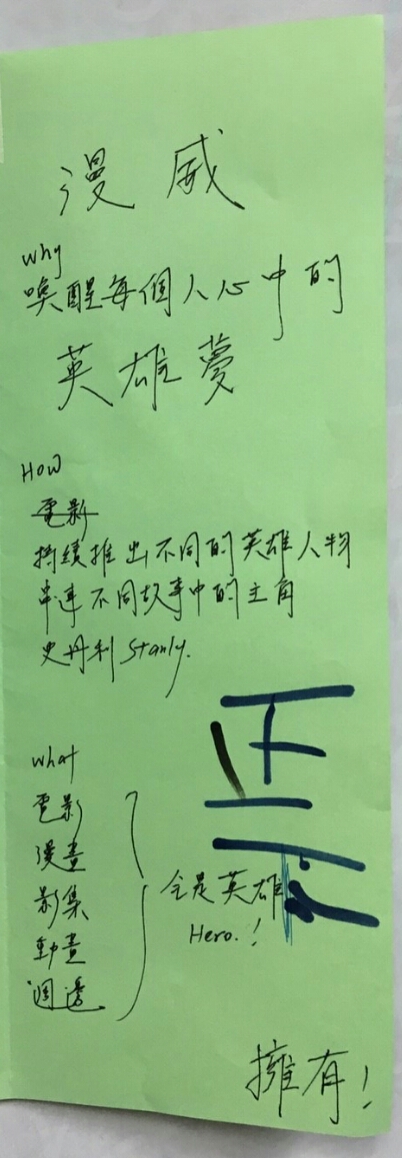 漫威
why
喚醒每個人心中的
英雄夢
HOW
電影
持續推出不同的英雄人物
串連不同故事中的主角
史丹利 Stanly.
what
電影
漫畫
影集
動畫
週邊
全是英雄
Hero.!
正
擁有!